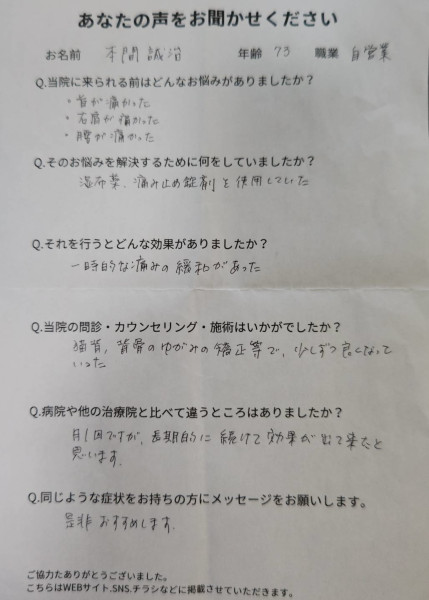 あなたの声をお聞かせください
お名前 本間誠治 年齢 73 職業 自営業
Q.当院に来られる前はどんなお悩みがありましたか？
・首が痛かった
・右肩が痛かった
・腰が痛かった
Q.そのお悩みを解決するために何をしていましたか？
湿布薬、痛み止め錠剤を使用していた
Q.それを行うとどんな効果がありましたか？
一時的な痛みの緩和があった
Q.当院の問診・カウンセリング・施術はいかがでしたか？
猫背，背骨のゆがみの矯正等で、少しずつ良くなって
いった
Q.病院や他の治療院と比べて違うところはありましたか？
月1回ですが、長期的に続けて効果が出て来たと
思います．
Q.同じような症状をお持ちの方にメッセージをお願いします。
是非おすすめします．
ご協力たありがとうございました。
こちらはWEBサイト.SNS.チラシなどに掲載させていただきます。